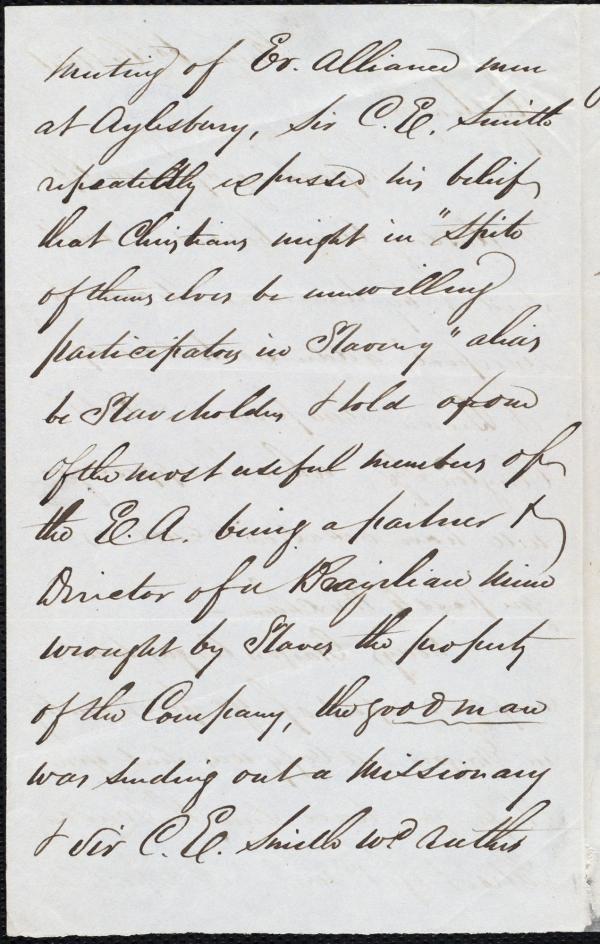 meeting of Ev. Alliance men
at Aylesbury, Sir C. E. Smith
repeatedly expressed his belief
that Christians might in "spite
of themselves be unwilling
participators in Slavery" alias
be Slaveholders & told of one
of the most useful members of
the E. A. being a partner &
Director of a Brazilian mine
wrought by Slaves the property
of the Company, the good man
was sending out a Missionary
& Sir C. E. Smith wd rather